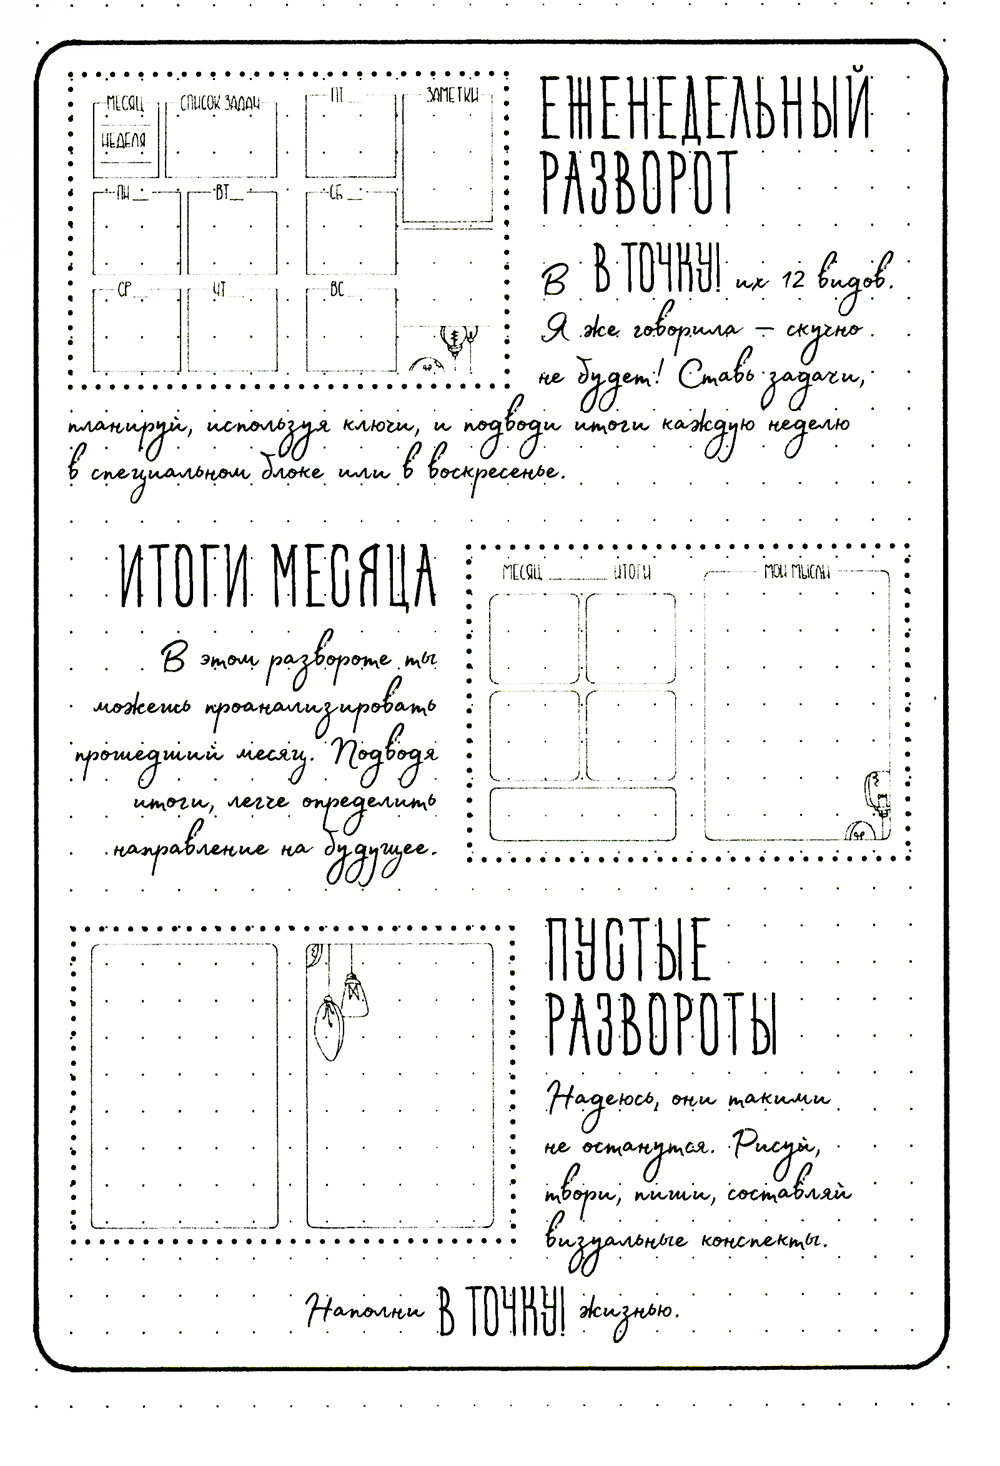 МЕСЯЦ
СПИСОК ЗАДАЧ
ПТ
ЗАМЕТКИ
НЕДЕЛЯ
ПН
ВТ
СБ
СР
ЧТ
ВС
ЕЖЕНЕДЕЛЬНЫЙ
РАЗВОРОТ
В В ТОЧКУ! их 12 видов.
Я же говорила – скучно
не будет! Ставь задачи,
планируй, используя ключи, и подводи итоги каждую неделю
в специальном блоке или в воскресенье.
ИТОГИ МЕСЯЦА
В этом развороте ты
можешь проанализировать
прошедший месяц. Подводя
итоги, легче определить
направление на будущее.
МЕСЯЦ ИТОГИ
МОИ МЫСЛИ
ПУСТЫЕ
РАЗВОРОТЫ
Надеюсь, они такими
не останутся. Рисуй,
твори, пиши, составляй
визуальные конспекты.
Наполни В ТОЧКУ! жизнью.